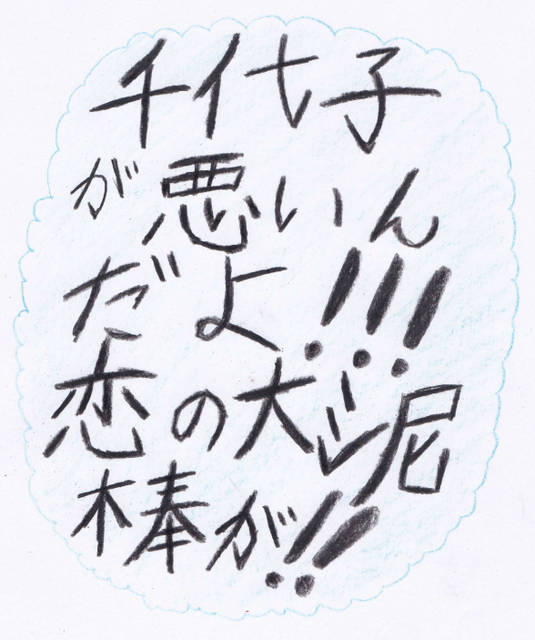 千代子
が悪いん
だよ!!!
恋の大泥
棒が!!